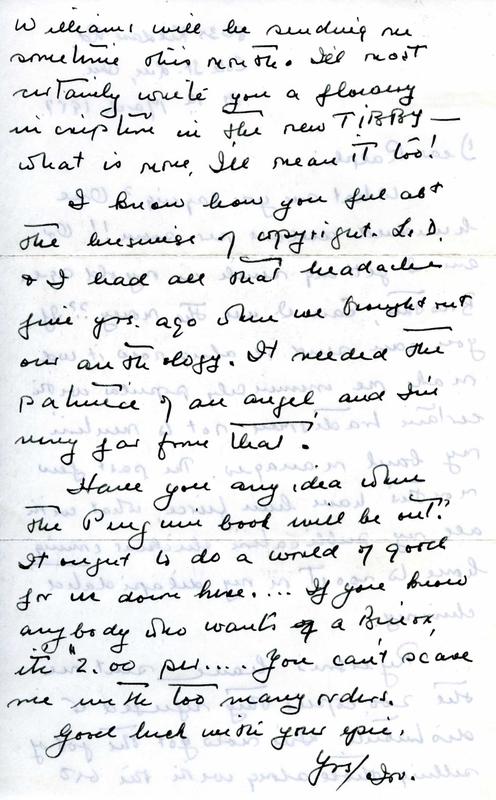 Williams will be sending me
sometime this month. I'll most
certainly write you a flowery
inscription in the new TiBBY —
what is more, I'll mean it too!
I know how you feel abt
the business of copyright. L.D.
& I had all that headache
five yrs. ago when we brought out
our anthology. It needed the
patience of an angel, and I'm
very far from that!
Have you any idea when
the Penguin book will be out?
It ought to do a world of good
for us down here.... If you know
anybody who wants a
it's "2.00 per.... You can't scare
me with too many orders.
Good luck with your epic.
Yrs/ Irv.